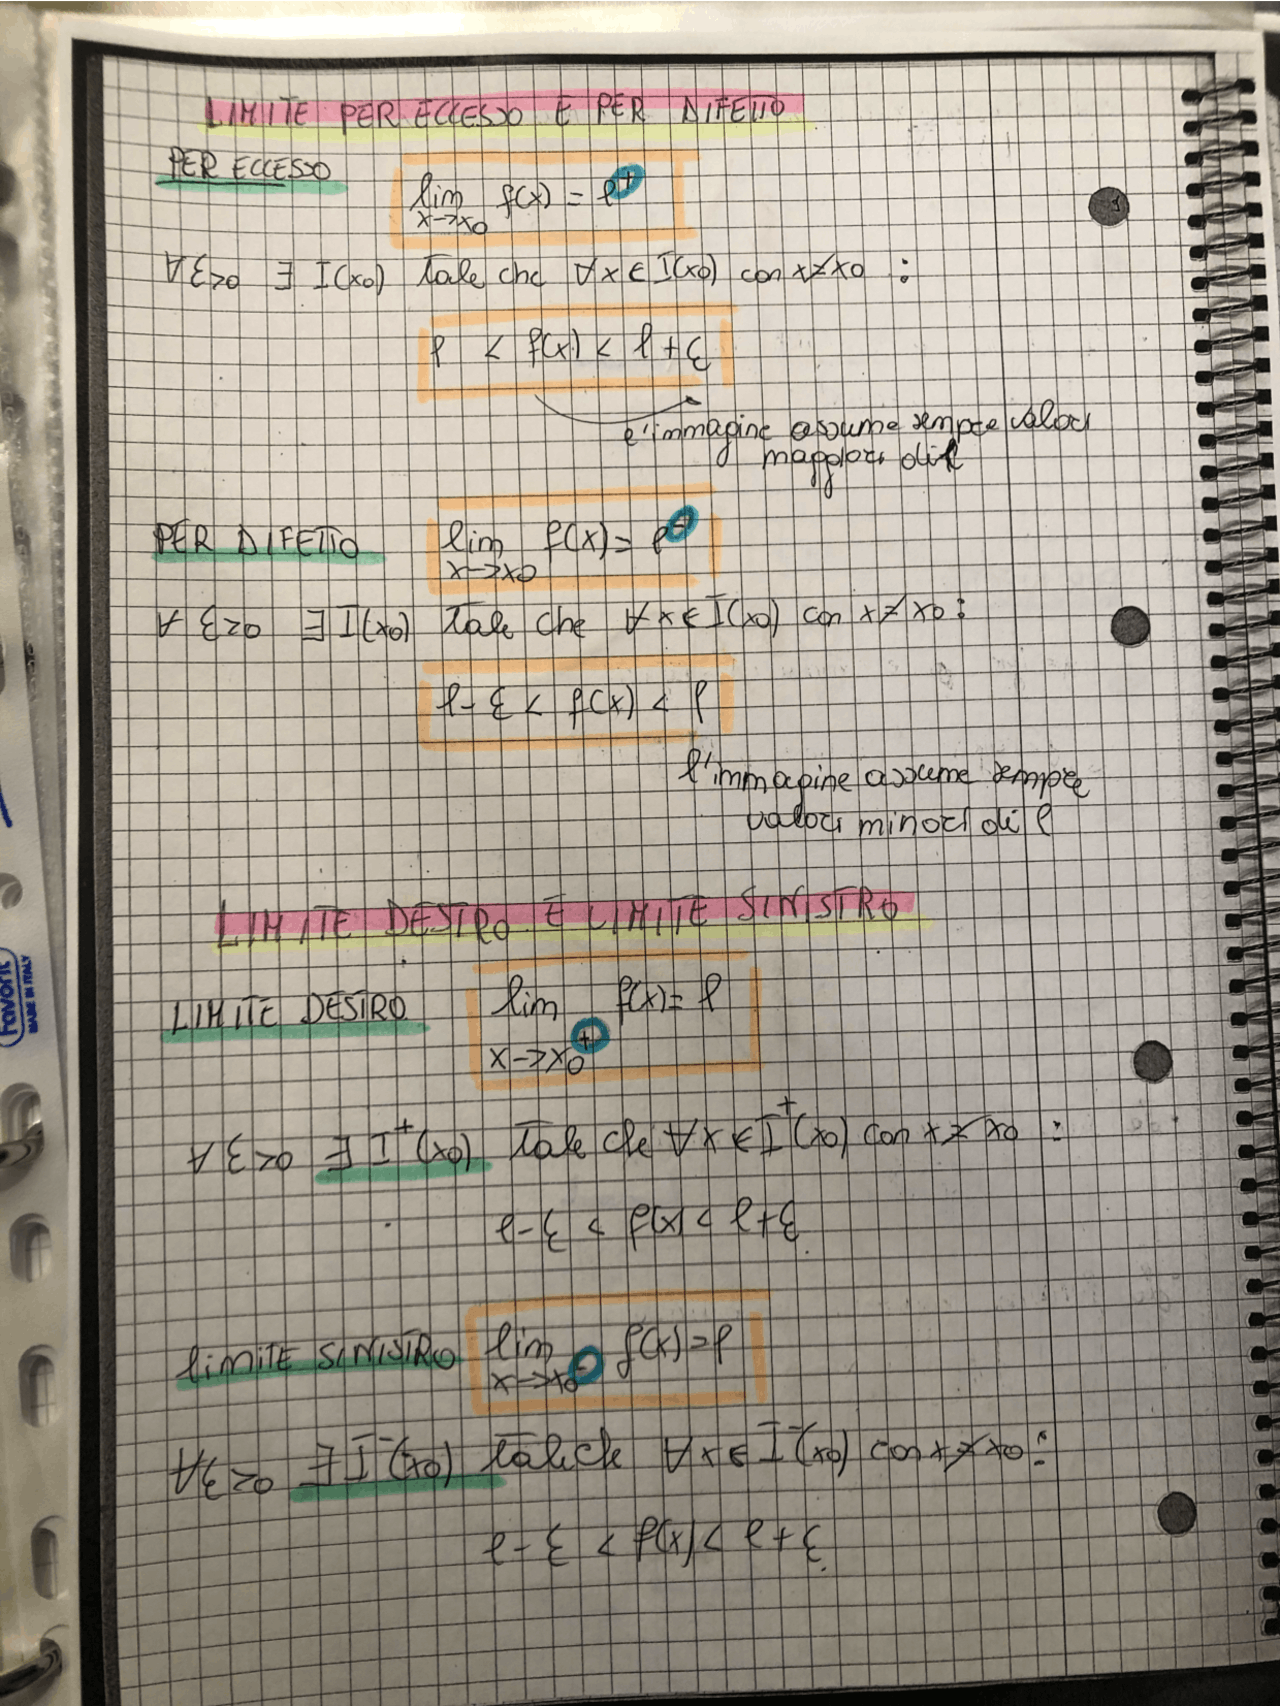 LIMITE PER ECCESSO E PER DIFETTO
PER ECCESSO
lim f(x) = l⁺
x→x0
∀ε>0 ∃ I(x0) tale che ∀x ∈ I(x0) con x≠x0 :
l < f(x) < l+ε
l'immagine assume sempre valori
maggiori di l
PER DIFETTO
lim f(x) = l⁻
x→x0
∀ ε>0 ∃ I(x0) tale che ∀x ∈ I(x0) con x≠x0 :
l-ε < f(x) < l
l'immagine assume sempre
valori minori di l
LIMITE DESTRO E LIMITE SINISTRO
LIMITE DESTRO
lim f(x) = l
x→x0⁺
∀ε>0 ∃ I⁺(x0) tale che ∀x ∈ I⁺(x0) con x≠x0 :
l-ε < f(x) < l+ε
LIMITE SINISTRO
lim f(x) = l
x→x0⁻
∀ε>0 ∃ I⁻(x0) tale che ∀x ∈ I⁻(x0) con x≠x0 :
l-ε < f(x) < l+ε
Favorit
MADE IN ITALY